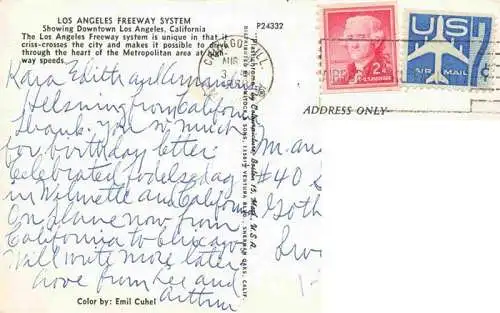 LOS ANGELES FREEWAY SYSTEM
Showing Downtown Los Angeles, California
The Los Angeles Freeway system is unique in that it
criss-crosses the city and makes it possible to drive
through the heart of the Metropolitan area at high-
way speeds.
P24332
CHICAGO, ILL.
2¢
US
AIR MAIL
7¢
ADDRESS ONLY
Kära Edith and
Helsning from California
Thank you so much
for birthday letter.
Celebrated födelsedag
in Wilmette and California
On plane now from
California to Chicago
Will write more later
Love from Lee and
Arthur
M. and
#40
Goth
Color by: Emil Cuhel